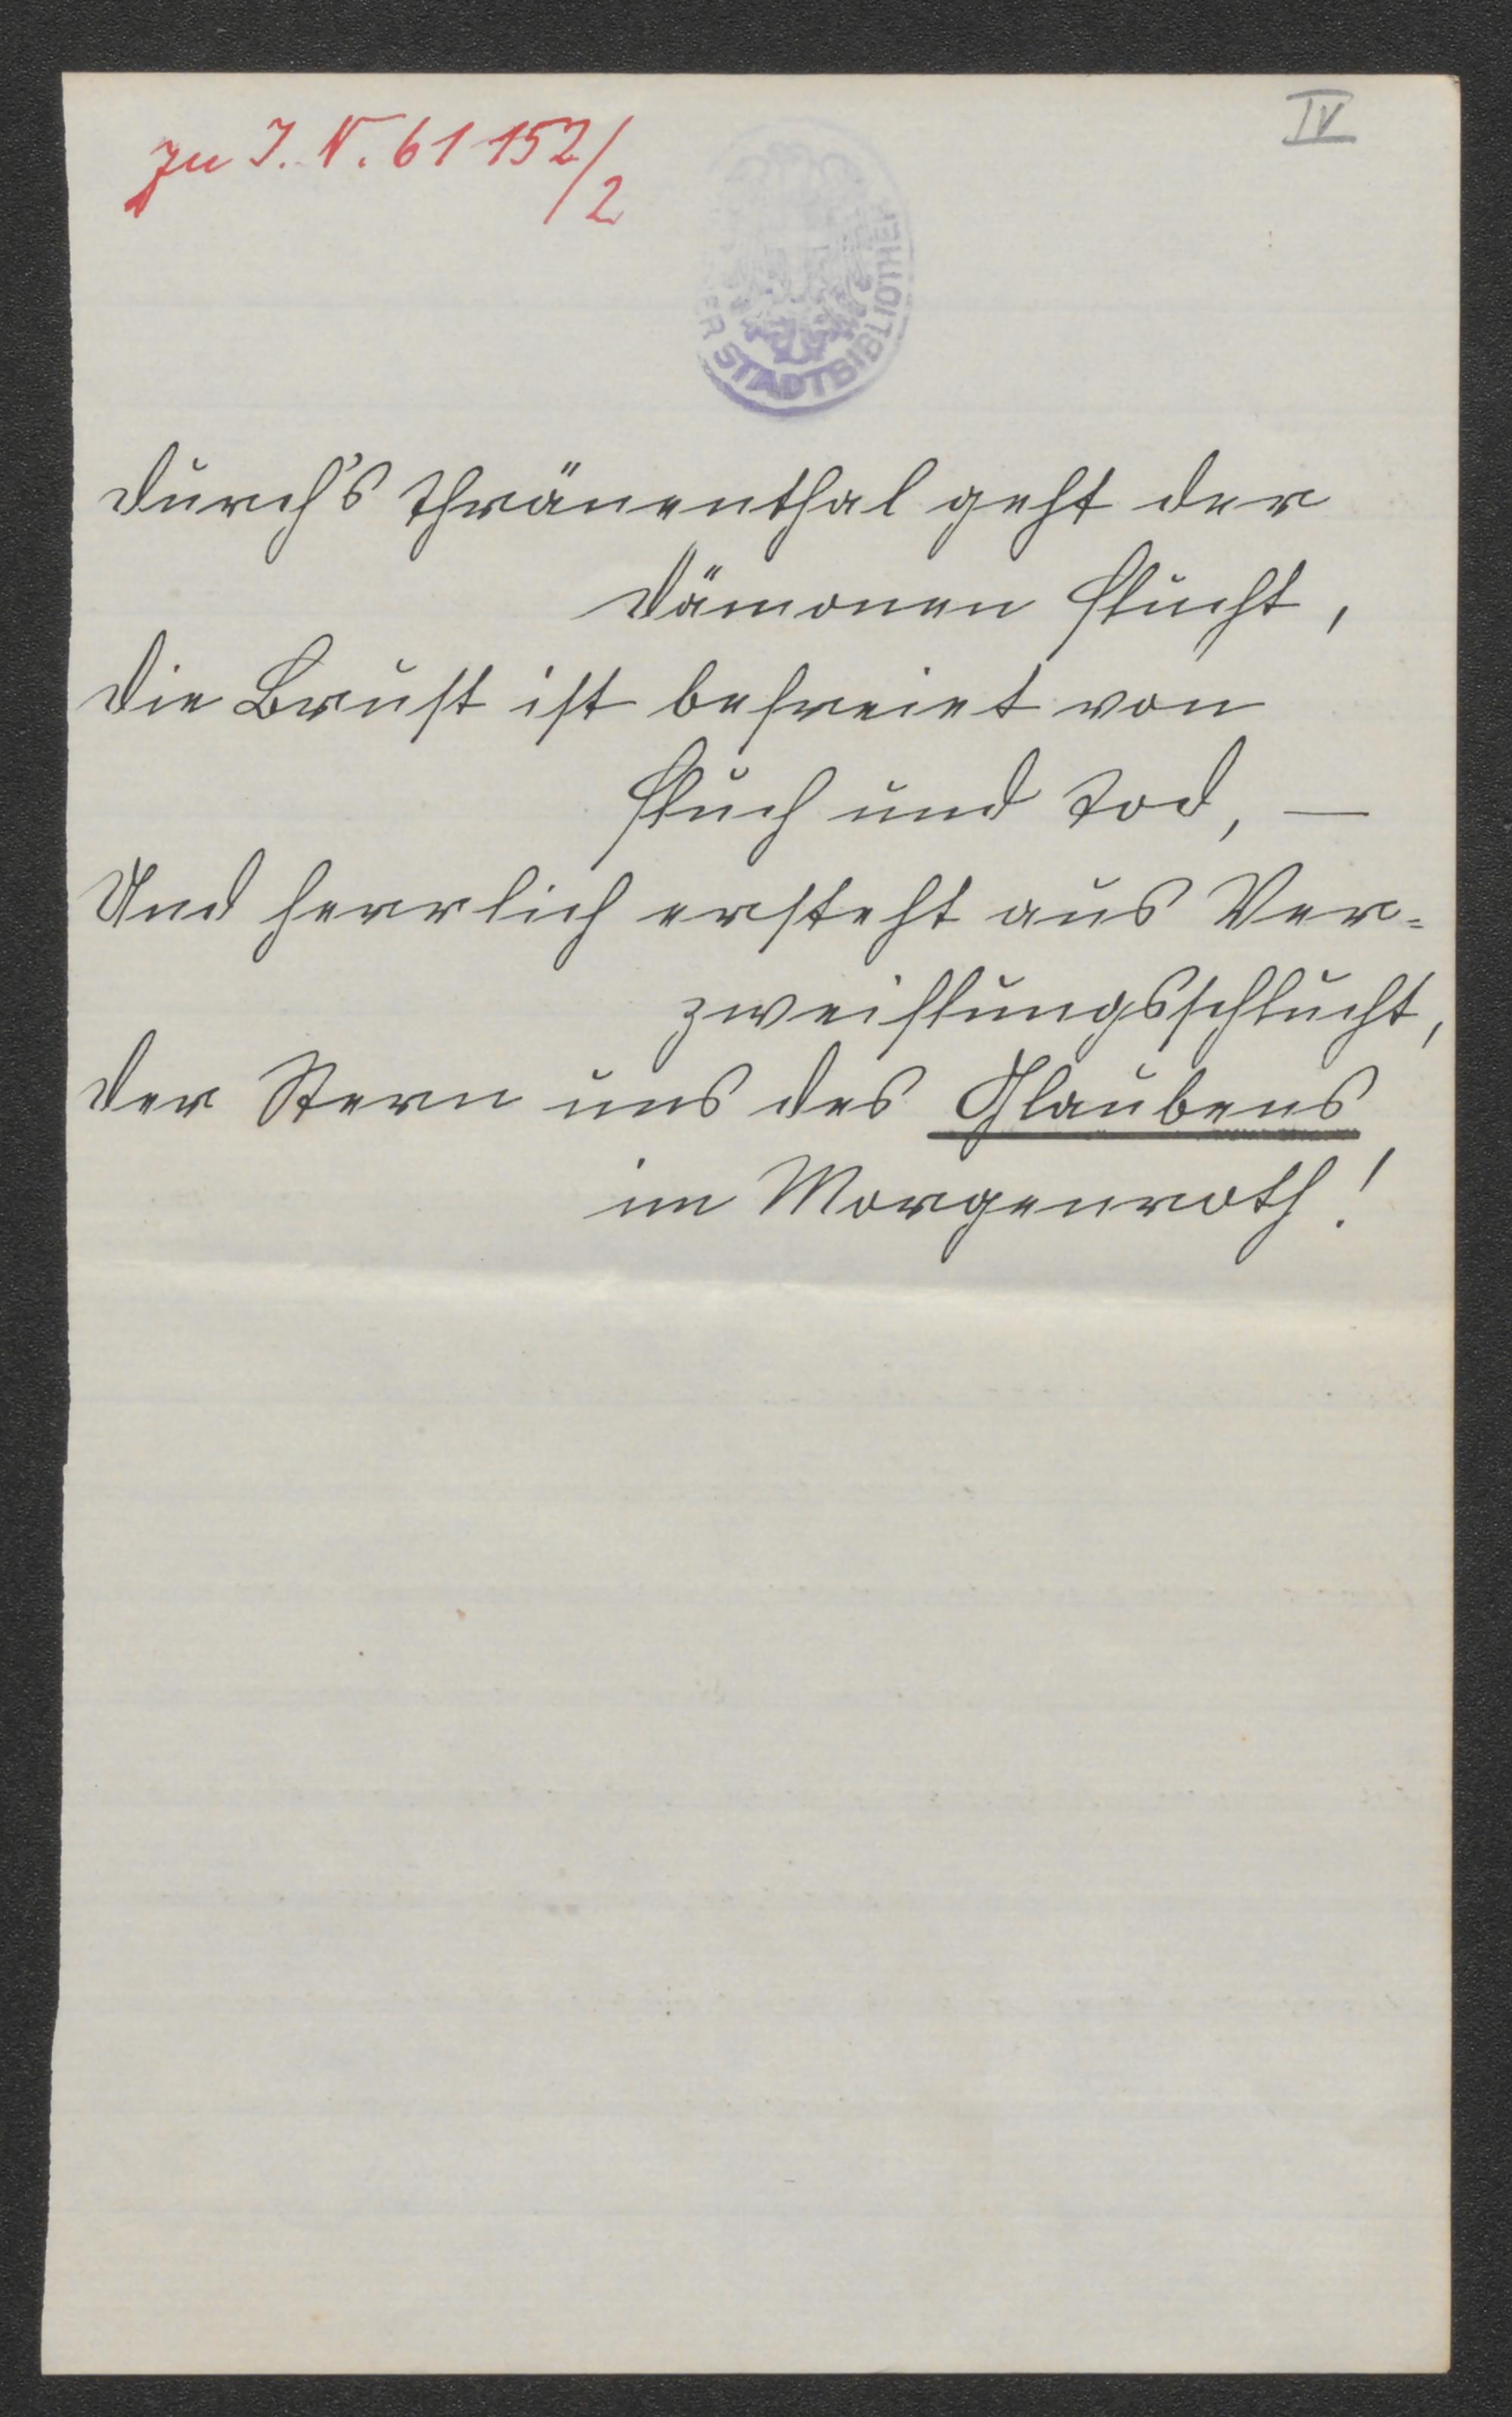 zu I. N. 61 152/2
IV
ER STADTBIBLIOTHEK
Durch's Thränenthal geht der
Dämonen Flucht,
Die Brust ist befreiet von
Fluch und Tod, —
Und herrlich ersteht aus Ver-
zweiflungsschlucht,
Der Stern uns des Glaubens
im Morgenroth!